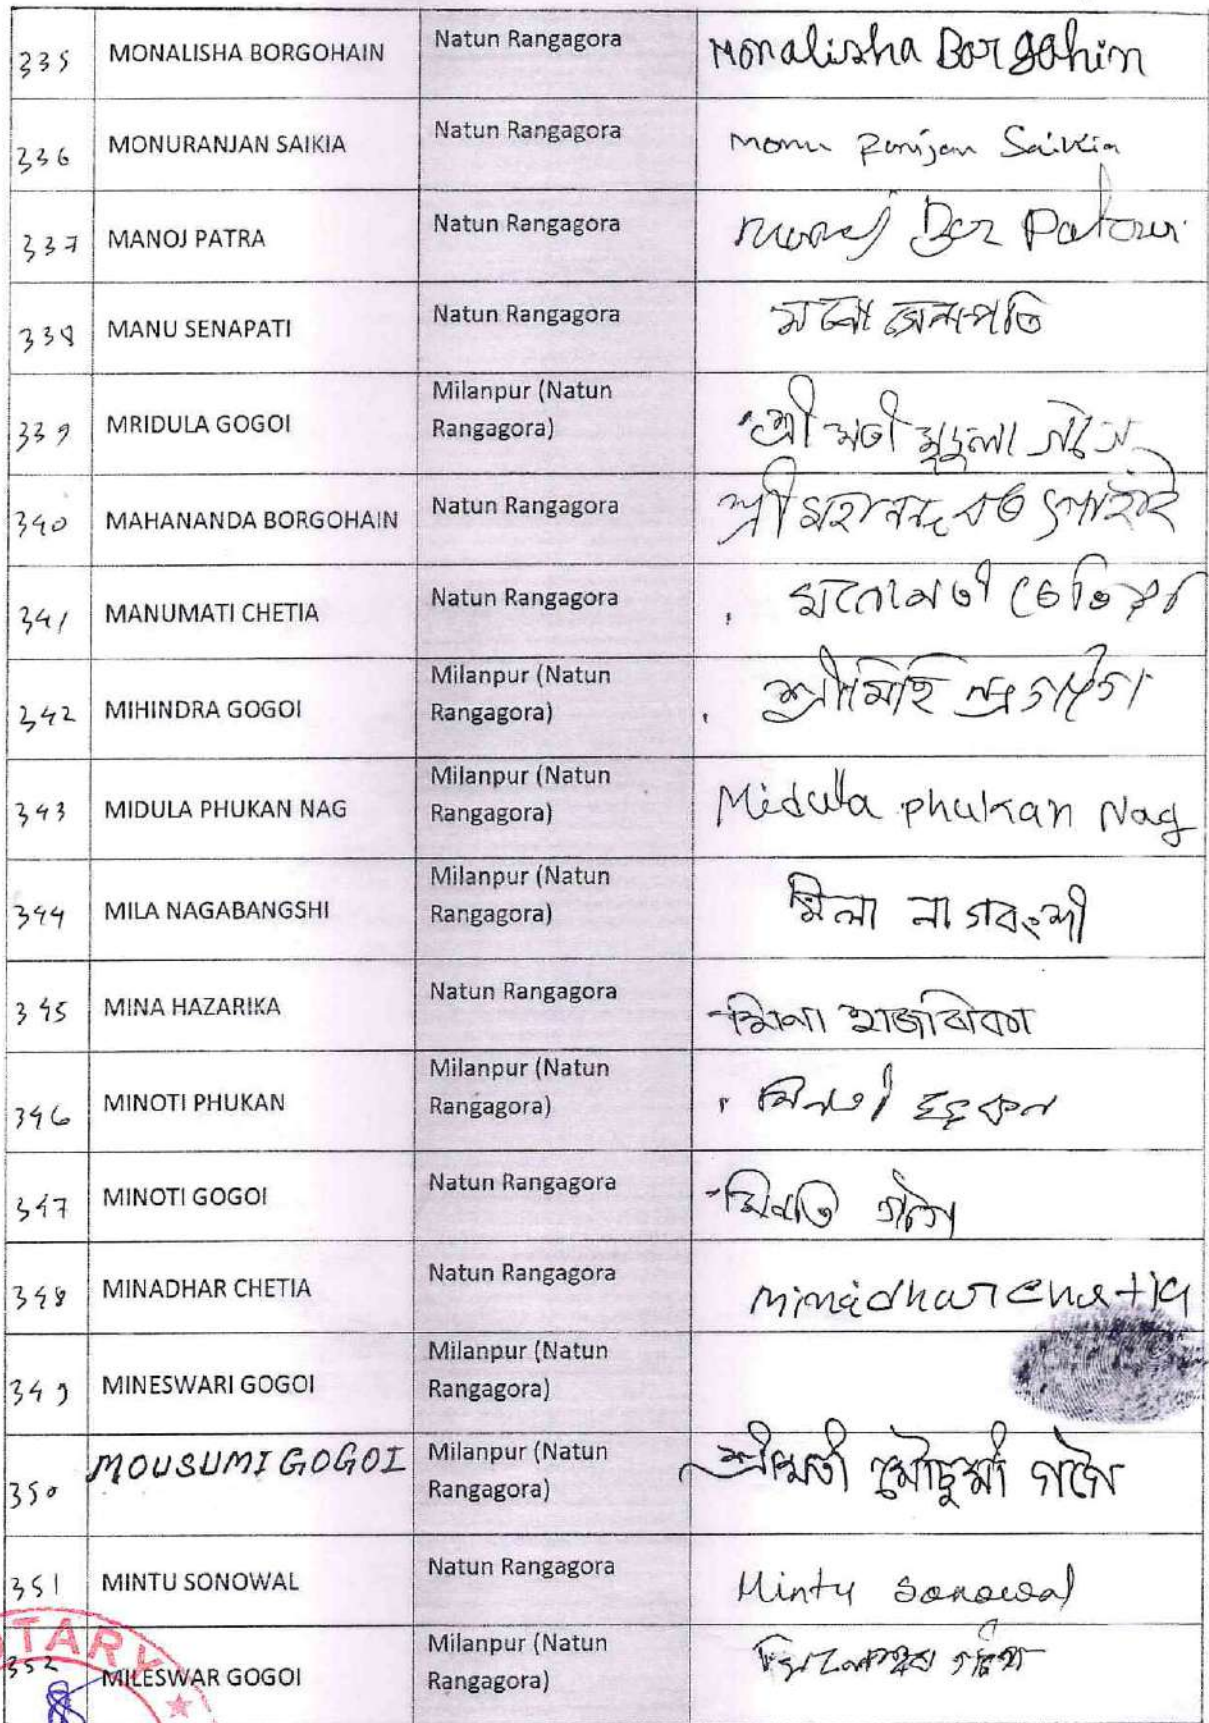 335 MONALISHA BORGOHAIN Natun Rangagora Monalisha Borgohin
336 MONURANJAN SAIKIA Natun Rangagora Monu Ranjan Saikia
337 MANOJ PATRA Natun Rangagora
338 MANU SENAPATI Natun Rangagora মনো সেনাপতি
339 MRIDULA GOGOI Milanpur (Natun
Rangagora) শ্ৰীমতী মৃদুলা গগৈ
340 MAHANANDA BORGOHAIN Natun Rangagora
341 MANUMATI CHETIA Natun Rangagora
342 MIHINDRA GOGOI Milanpur (Natun
Rangagora) শ্ৰীমিহিন্দ্ৰ গগৈ
343 MIDULA PHUKAN NAG Milanpur (Natun
Rangagora) Midula phukan Nag
344 MILA NAGABANGSHI Milanpur (Natun
Rangagora) মিলা নাগবংশী
345 MINA HAZARIKA Natun Rangagora মিনা হাজৰিকা
346 MINOTI PHUKAN Milanpur (Natun
Rangagora) মিনতী
347 MINOTI GOGOI Natun Rangagora মিনতি গগৈ
348 MINADHAR CHETIA Natun Rangagora Minadhar Chetia
349 MINESWARI GOGOI Milanpur (Natun
Rangagora)
350 MOUSUMI GOGOI Milanpur (Natun
Rangagora) শ্ৰীমতী মৌচুমী গগৈ
351 MINTU SONOWAL Natun Rangagora Mintu Sonowal
352 MILESWAR GOGOI Milanpur (Natun
Rangagora)